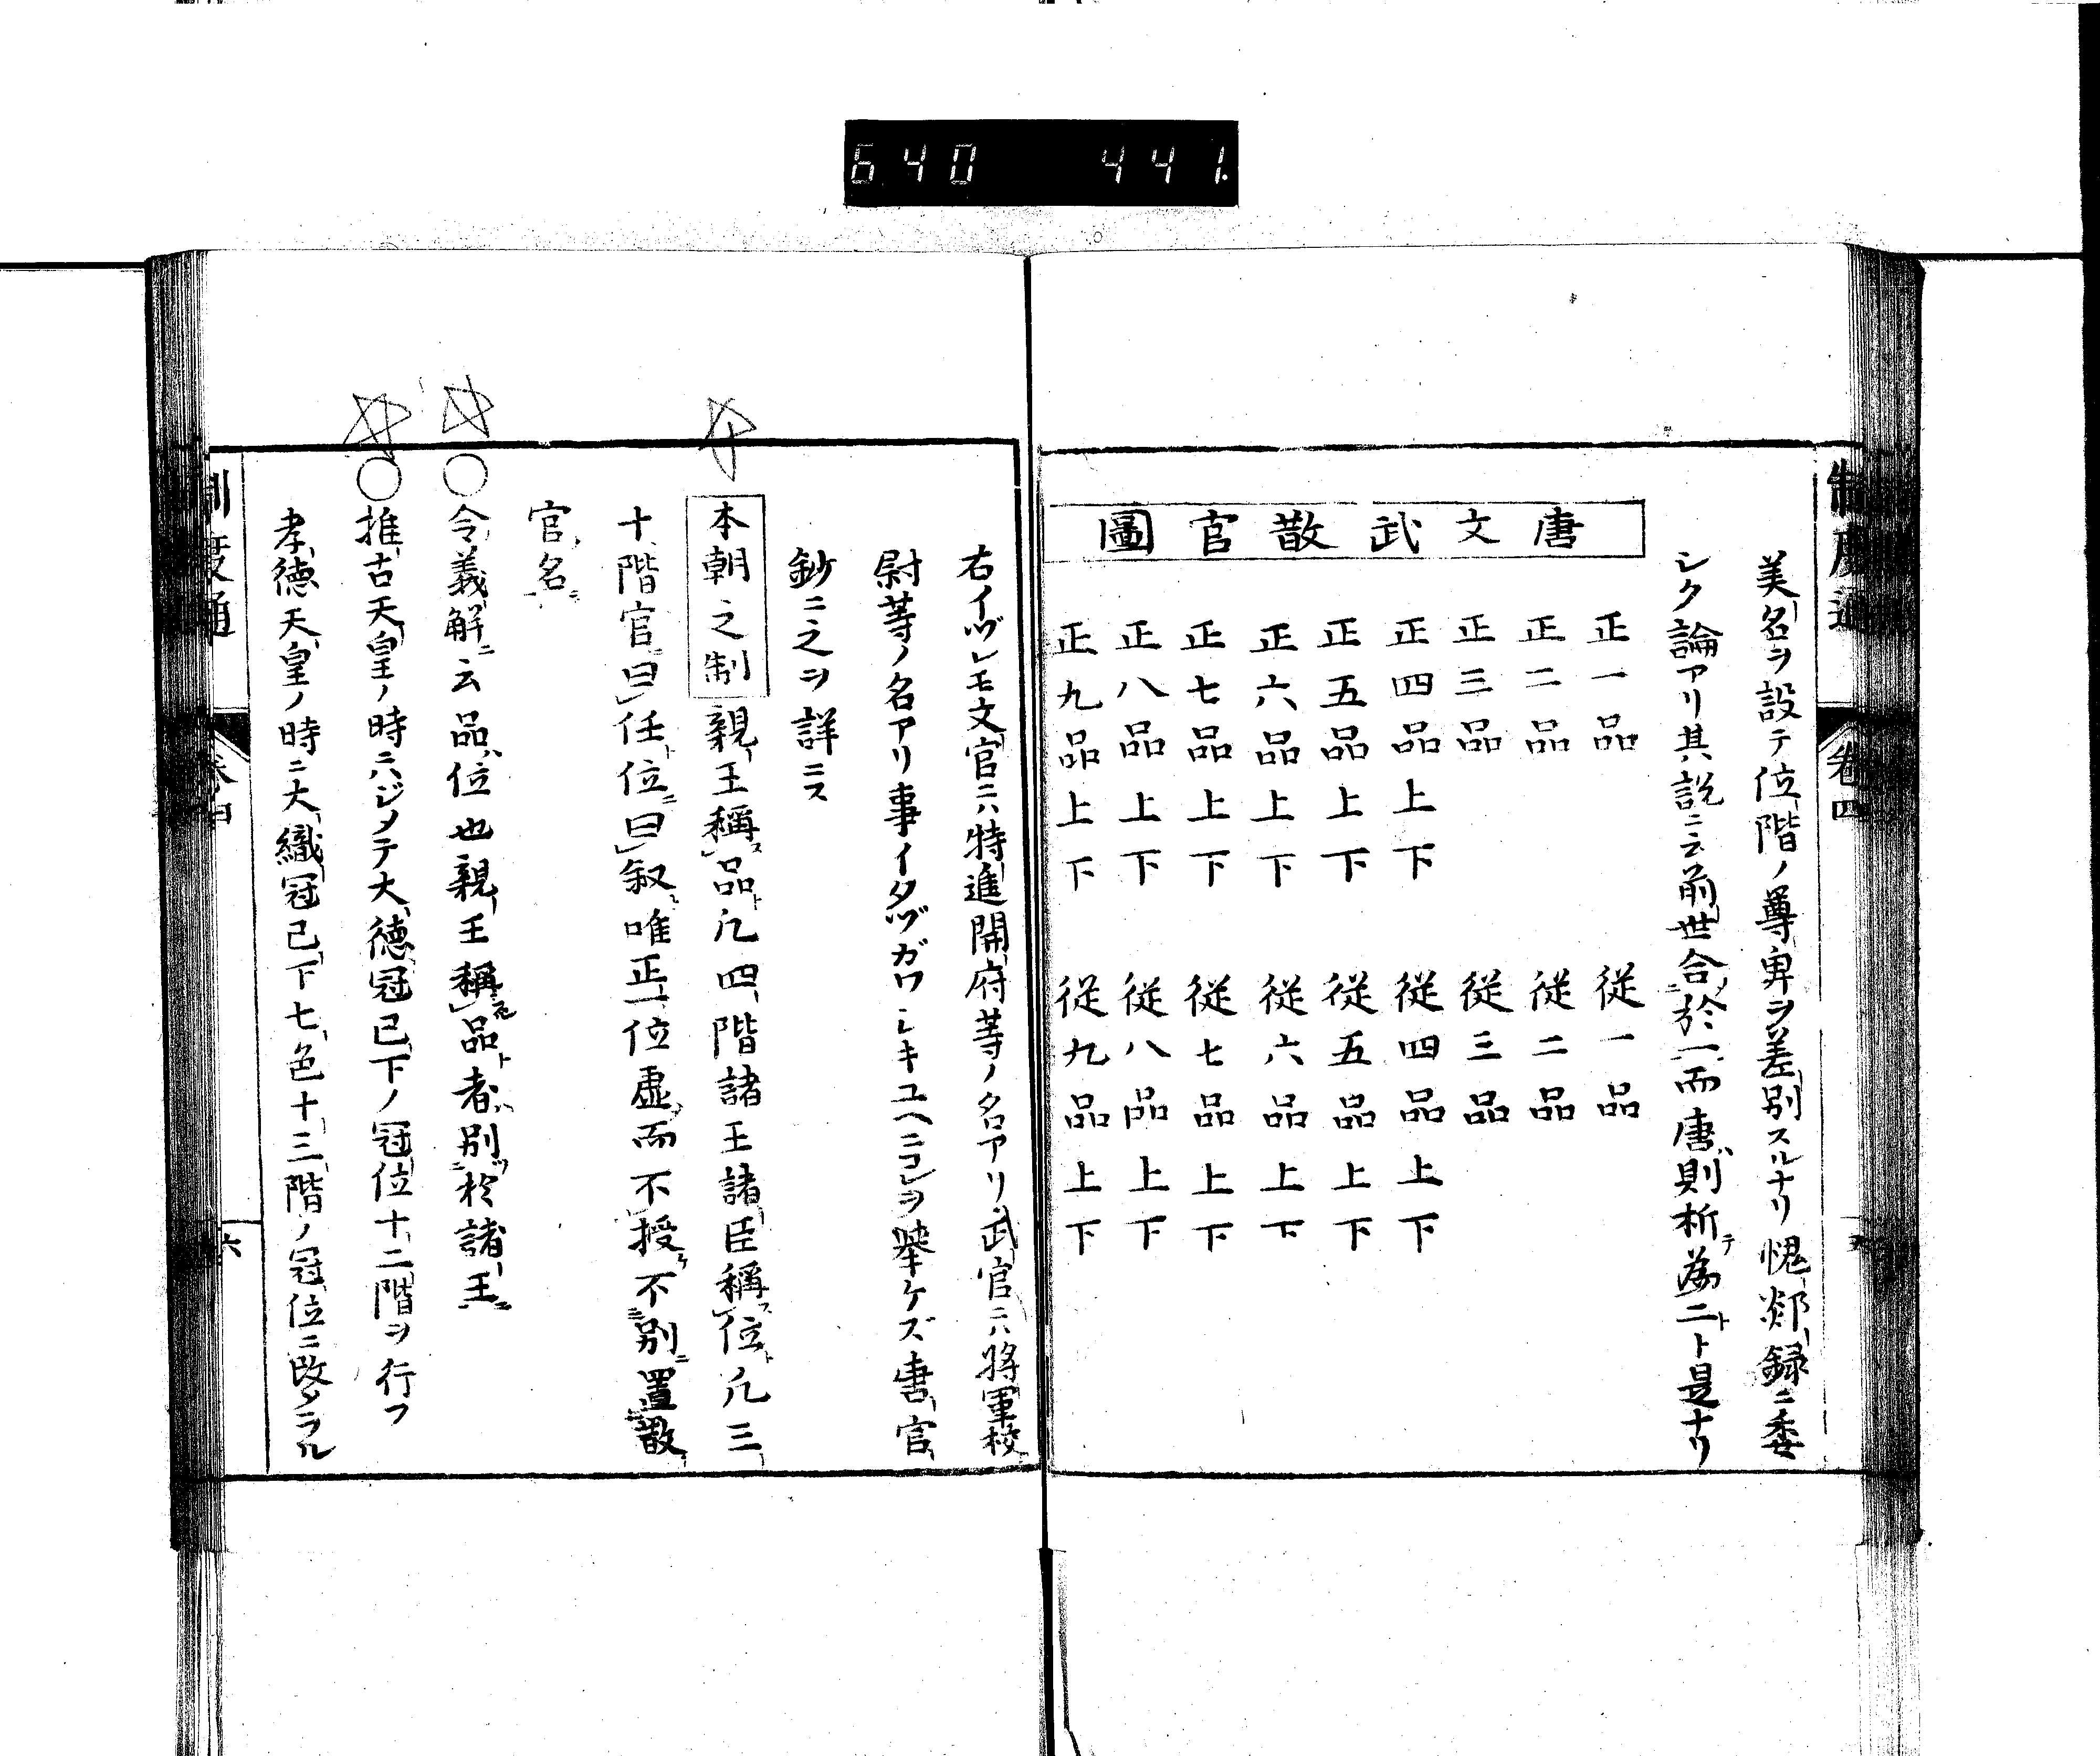 640 441.
制度通 卷四
美名ヲ設テ位階ノ尊卑ヲ差別スルナリ愧郯録ニ委
シク論アリ其説ニ云前世合於一而唐則析テ為二ト是ナリ
唐文武散官圖
正一品 從一品
正二品 從二品
正三品 從三品
正四品上下 從四品上下
正五品上下 從五品上下
正六品上下 從六品上下
正七品上下 從七品上下
正八品上下 從八品上下
正九品上下 從九品上下
右イヅレモ文官ニハ特進開府等ノ名アリ武官ニハ將軍校
尉等ノ名アリ事イタヅガワシキユヘニコレヲ舉ケズ唐官
鈔ニ之ヲ詳ニス
本朝之制 親王稱品凡四階諸王諸臣稱位凡三
十階官曰任位曰叙唯正一位虚而不授不別置散
官名
○令義解云品位也親王稱品者別於諸王
○推古天皇ノ時ニハジメテ大德冠已下ノ冠位十二階ヲ行フ
孝德天皇ノ時ニ大織冠已下七色十三階ノ冠位ニ改メラル
制度通 卷四 六